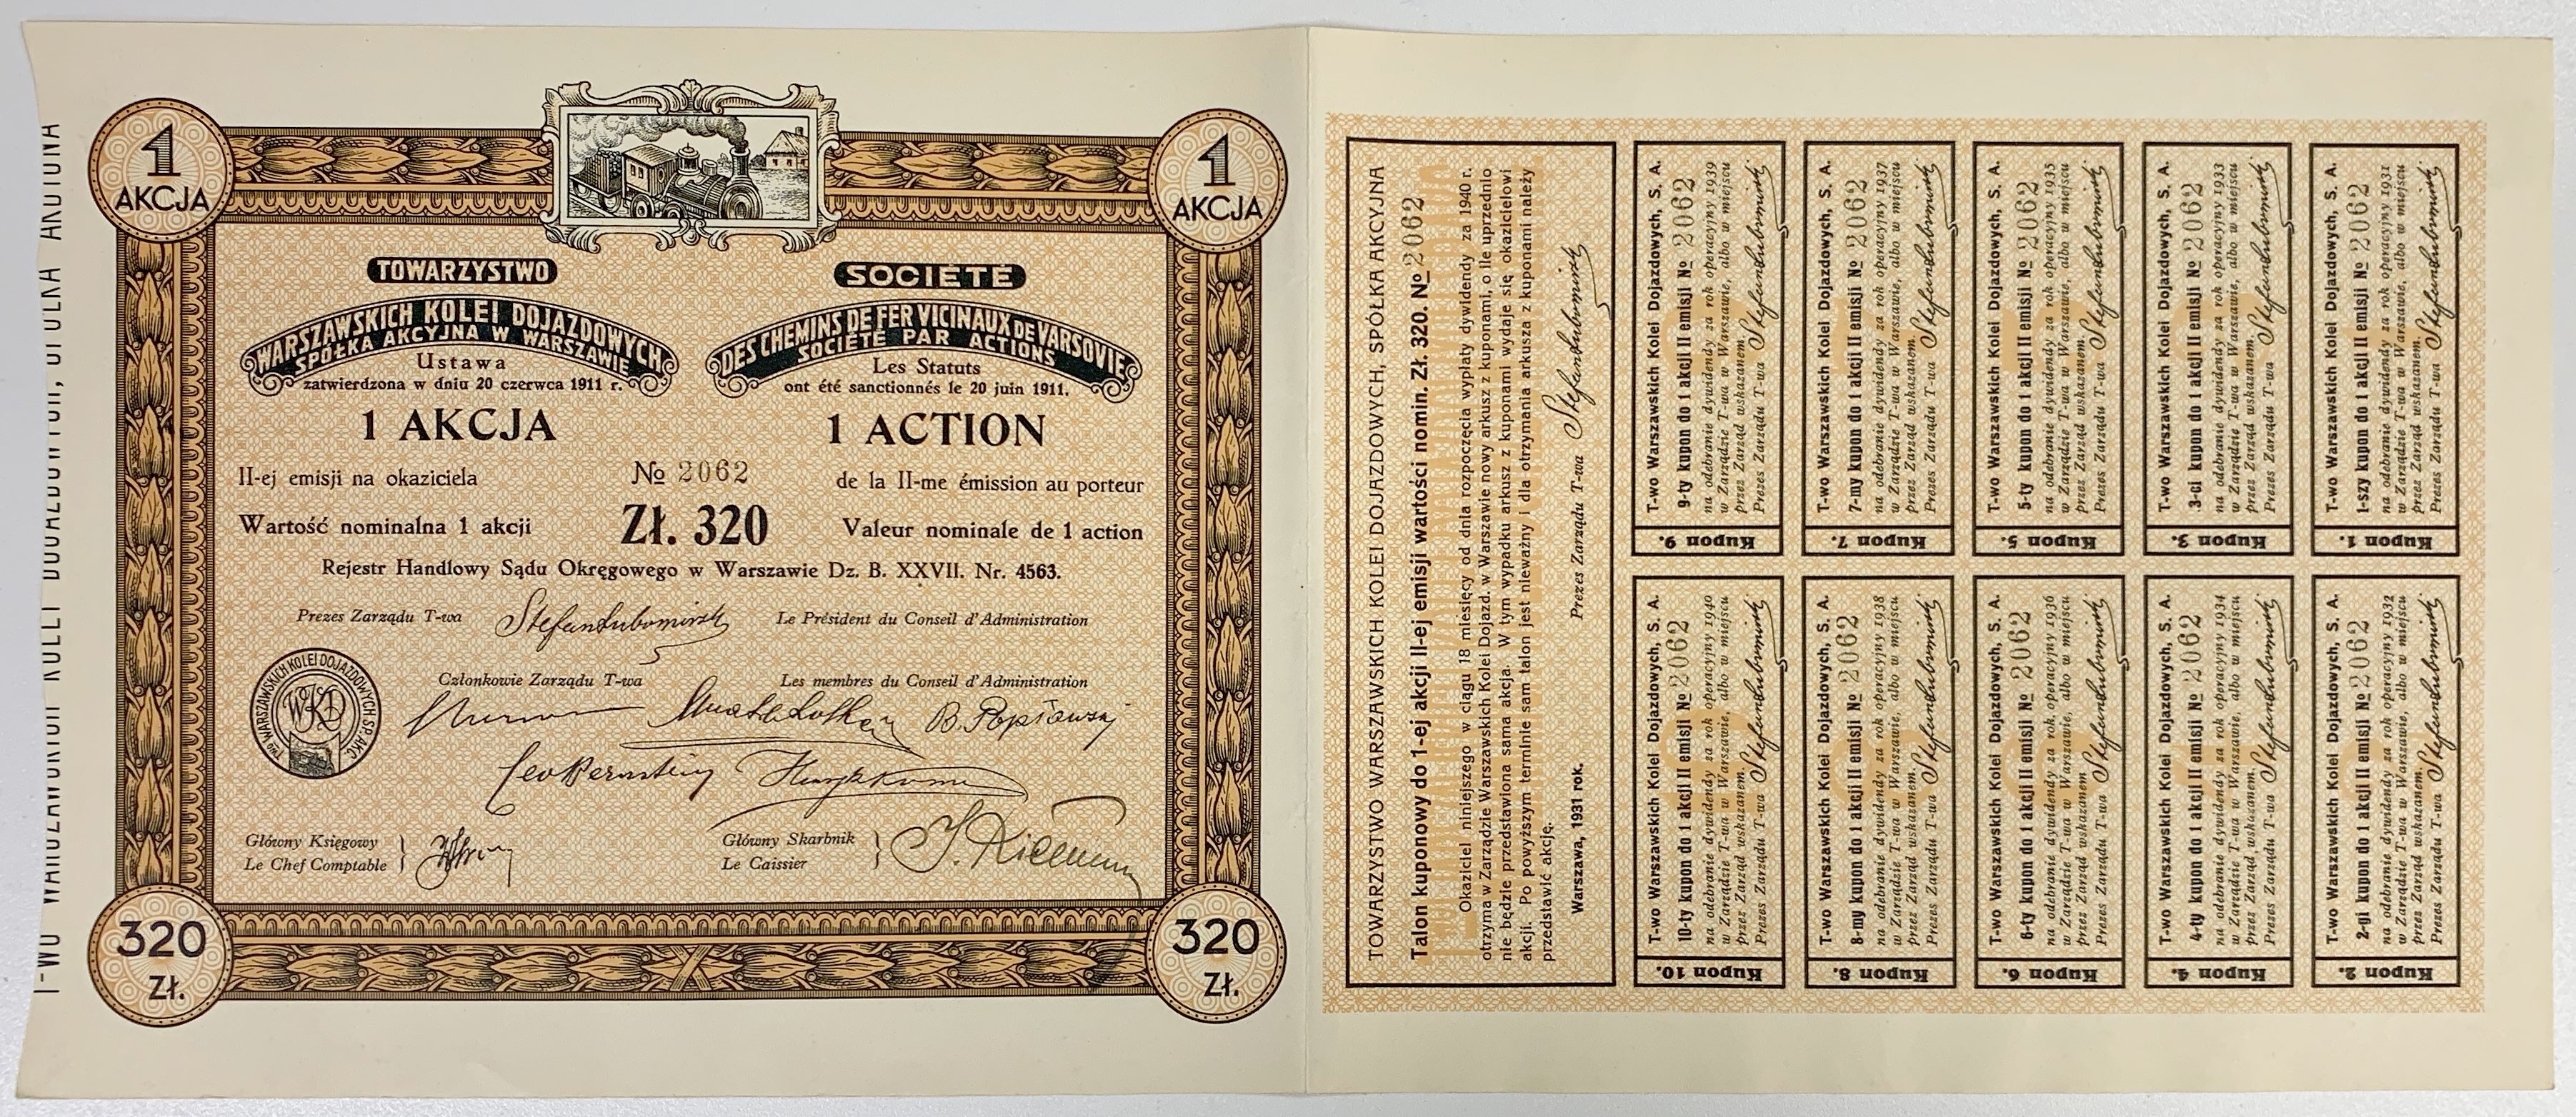 1
AKCJA
1
AKCJA
TOWARZYSTWO
WARSZAWSKICH KOLEI DOJAZDOWYCH
SPÓŁKA AKCYJNA W WARSZAWIE
Ustawa
zatwierdzona w dniu 20 czerwca 1911 r.
1 AKCJA
SOCIÉTÉ
DES CHEMINS DE FER VICINAUX DE VARSOVIE
SOCIÉTÉ PAR ACTIONS
Les Statuts
ont été sanctionnés le 20 juin 1911.
1 ACTION
II-ej emisji na okaziciela
№ 2062
de la II-me émission au porteur
Wartość nominalna 1 akcji
Zł. 320
Valeur nominale de 1 action
Rejestr Handlowy Sądu Okręgowego w Warszawie Dz. B. XXVII. Nr. 4563.
Prezes Zarządu T-wa
Stefan Lubomirski
Le Président du Conseil d'Administration
Członkowie Zarządu T-wa
Les membres du Conseil d'Administration
T-WO WARSZAWSKICH KOLEI DOJAZDOWYCH SP. AKC.
WKD
B. Popławski
Leo Bernstein
Główny Księgowy
Le Chef Comptable
Główny Skarbnik
Le Caissier
320
Zł.
320
Zł.
T-WO WARSZAWSKICH KOLEI DOJAZDOWYCH, SPÓŁKA AKCYJNA
TOWARZYSTWO WARSZAWSKICH KOLEI DOJAZDOWYCH, SPÓŁKA AKCYJNA
Talon kuponowy do 1-ej akcji II-ej emisji wartości nomin. Zł. 320. № 2062
Okaziciel niniejszego w ciągu 18 miesięcy od dnia rozpoczęcia wypłaty dywidendy za 1940 r.
otrzyma w Zarządzie Warszawskich Kolei Dojazd. w Warszawie nowy arkusz z kuponami, o ile uprzednio
nie będzie przedstawiona sama akcja. W tym wypadku arkusz z kuponami wydaje się okazicielowi
akcji. Po powyższym terminie sam talon jest nieważny i dla otrzymania arkusza z kuponami należy
przedstawić akcję.
Warszawa, 1931 rok.
Prezes Zarządu T-wa Stefan Lubomirski
T-wo Warszawskich Kolei Dojazdowych, S. A.
9-ty kupon do 1 akcji II emisji № 2062
na odebranie dywidendy za rok operacyjny 1939
w Zarządzie T-wa w Warszawie, albo w miejscu
przez Zarząd wskazanem.
Prezes Zarządu T-wa Stefan Lubomirski
Kupon 9.
T-wo Warszawskich Kolei Dojazdowych, S. A.
7-my kupon do 1 akcji II emisji № 2062
na odebranie dywidendy za rok operacyjny 1937
w Zarządzie T-wa w Warszawie, albo w miejscu
przez Zarząd wskazanem.
Prezes Zarządu T-wa Stefan Lubomirski
Kupon 7.
T-wo Warszawskich Kolei Dojazdowych, S. A.
5-ty kupon do 1 akcji II emisji № 2062
na odebranie dywidendy za rok operacyjny 1935
w Zarządzie T-wa w Warszawie, albo w miejscu
przez Zarząd wskazanem.
Prezes Zarządu T-wa Stefan Lubomirski
Kupon 5.
T-wo Warszawskich Kolei Dojazdowych, S. A.
3-ci kupon do 1 akcji II emisji № 2062
na odebranie dywidendy za rok operacyjny 1933
w Zarządzie T-wa w Warszawie, albo w miejscu
przez Zarząd wskazanem.
Prezes Zarządu T-wa Stefan Lubomirski
Kupon 3.
T-wo Warszawskich Kolei Dojazdowych, S. A.
1-szy kupon do 1 akcji II emisji № 2062
na odebranie dywidendy za rok operacyjny 1931
w Zarządzie T-wa w Warszawie, albo w miejscu
przez Zarząd wskazanem.
Prezes Zarządu T-wa Stefan Lubomirski
Kupon 1.
T-wo Warszawskich Kolei Dojazdowych, S. A.
10-ty kupon do 1 akcji II emisji № 2062
na odebranie dywidendy za rok operacyjny 1940
w Zarządzie T-wa w Warszawie, albo w miejscu
przez Zarząd wskazanem.
Prezes Zarządu T-wa Stefan Lubomirski
Kupon 10.
T-wo Warszawskich Kolei Dojazdowych, S. A.
8-my kupon do 1 akcji II emisji № 2062
na odebranie dywidendy za rok operacyjny 1938
w Zarządzie T-wa w Warszawie, albo w miejscu
przez Zarząd wskazanem.
Prezes Zarządu T-wa Stefan Lubomirski
Kupon 8.
T-wo Warszawskich Kolei Dojazdowych, S. A.
6-ty kupon do 1 akcji II emisji № 2062
na odebranie dywidendy za rok operacyjny 1936
w Zarządzie T-wa w Warszawie, albo w miejscu
przez Zarząd wskazanem
Prezes Zarządu T-wa Stefan Lubomirski
Kupon 6.
T-wo Warszawskich Kolei Dojazdowych, S. A.
4-ty kupon do 1 akcji II emisji № 2062
na odebranie dywidendy za rok operacyjny 1934
w Zarządzie T-wa w Warszawie, albo w miejscu
przez Zarząd wskazanem.
Prezes Zarządu T-wa Stefan Lubomirski
Kupon 4.
T-wo Warszawskich Kolei Dojazdowych, S. A.
2-gi kupon do 1 akcji II emisji № 2062
na odebranie dywidendy za rok operacyjny 1932
w Zarządzie T-wa w Warszawie, albo w miejscu
przez Zarząd wskazanem.
Prezes Zarządu T-wa Stefan Lubomirski
Kupon 2.